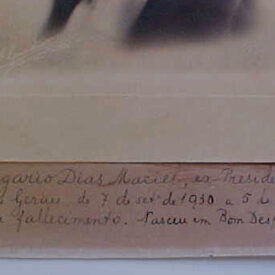 gario Dias Maciel, ex-Preside
Geraes, de 7 de setº de 1930 a 5
fallecimento. Nasceu em Bom Des